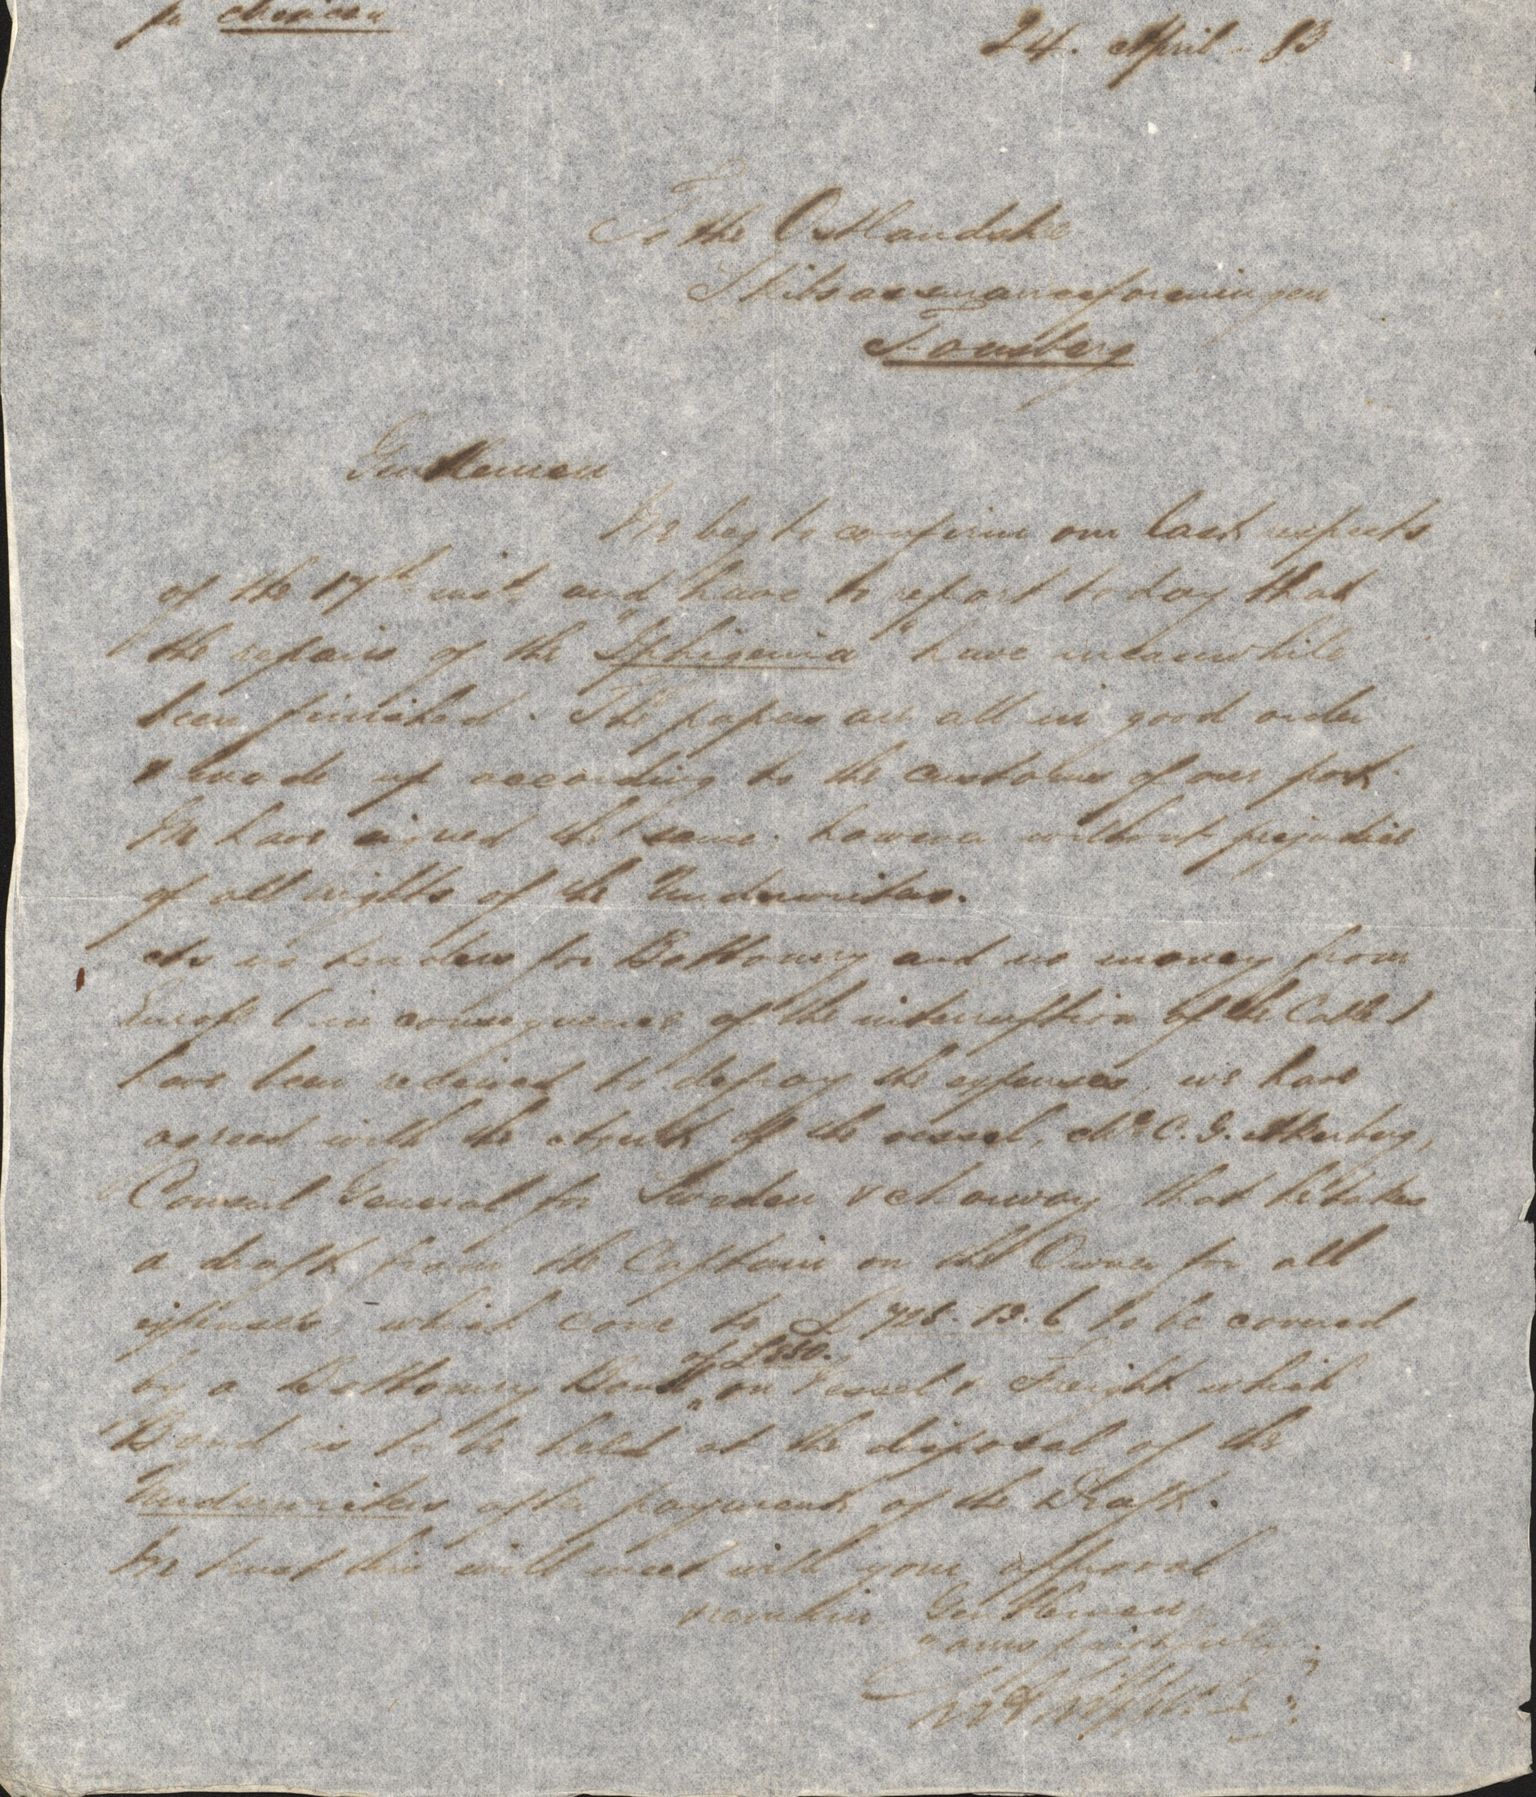 pr Mexican
24. April - 83
To the Ostlandske
Skibsassuranceforeningen
Tonsberg
Gentlemen
We beg to confirm our last respects
of the 17th inst. and have to report today that
the repairs of the "Iphigenia" have meanwhile
been finished. The papers are all in good order
& made up according to the customs of our port.
We have signed the same, however without prejudice
of all rights of the Underwriters.
As no tenders for Bottomry and no money from
Europe (in consequence of the interruption of the Cable)
have been received to defray the expenses, we have
agreed with the Agent of the vessel, Mr. C. G. Akerberg,
Consul General for Sweden & Norway that he takes
a draft from the Captain on the Owner for all
expenses, which come to £ 13. 6 to be covered
by a Bottomry Bond of £550. on Vessel & Freight which
Bond is to be held at the disposal of the
Underwriters after payment of the Draft.
We trust this will meet with your approval
& remain Gentlemen
yours faithfully